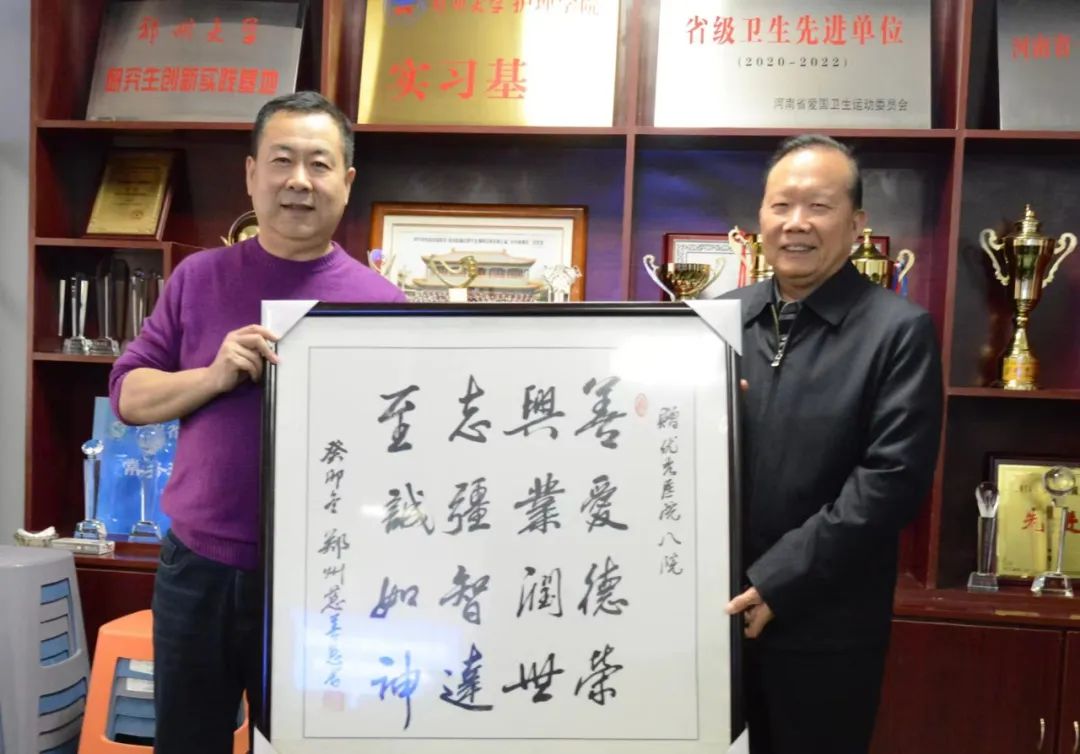 郑州大学
研究生创新实践基地
郑州大学护理学院
实习基
省级卫生先进单位
(2020-2022)
河南省爱国卫生运动委员会
河南省
赠优老医院八院
善爱德荣
興業潤世
志疆智達
至誠如神
癸卯冬 郑州慈善
先进